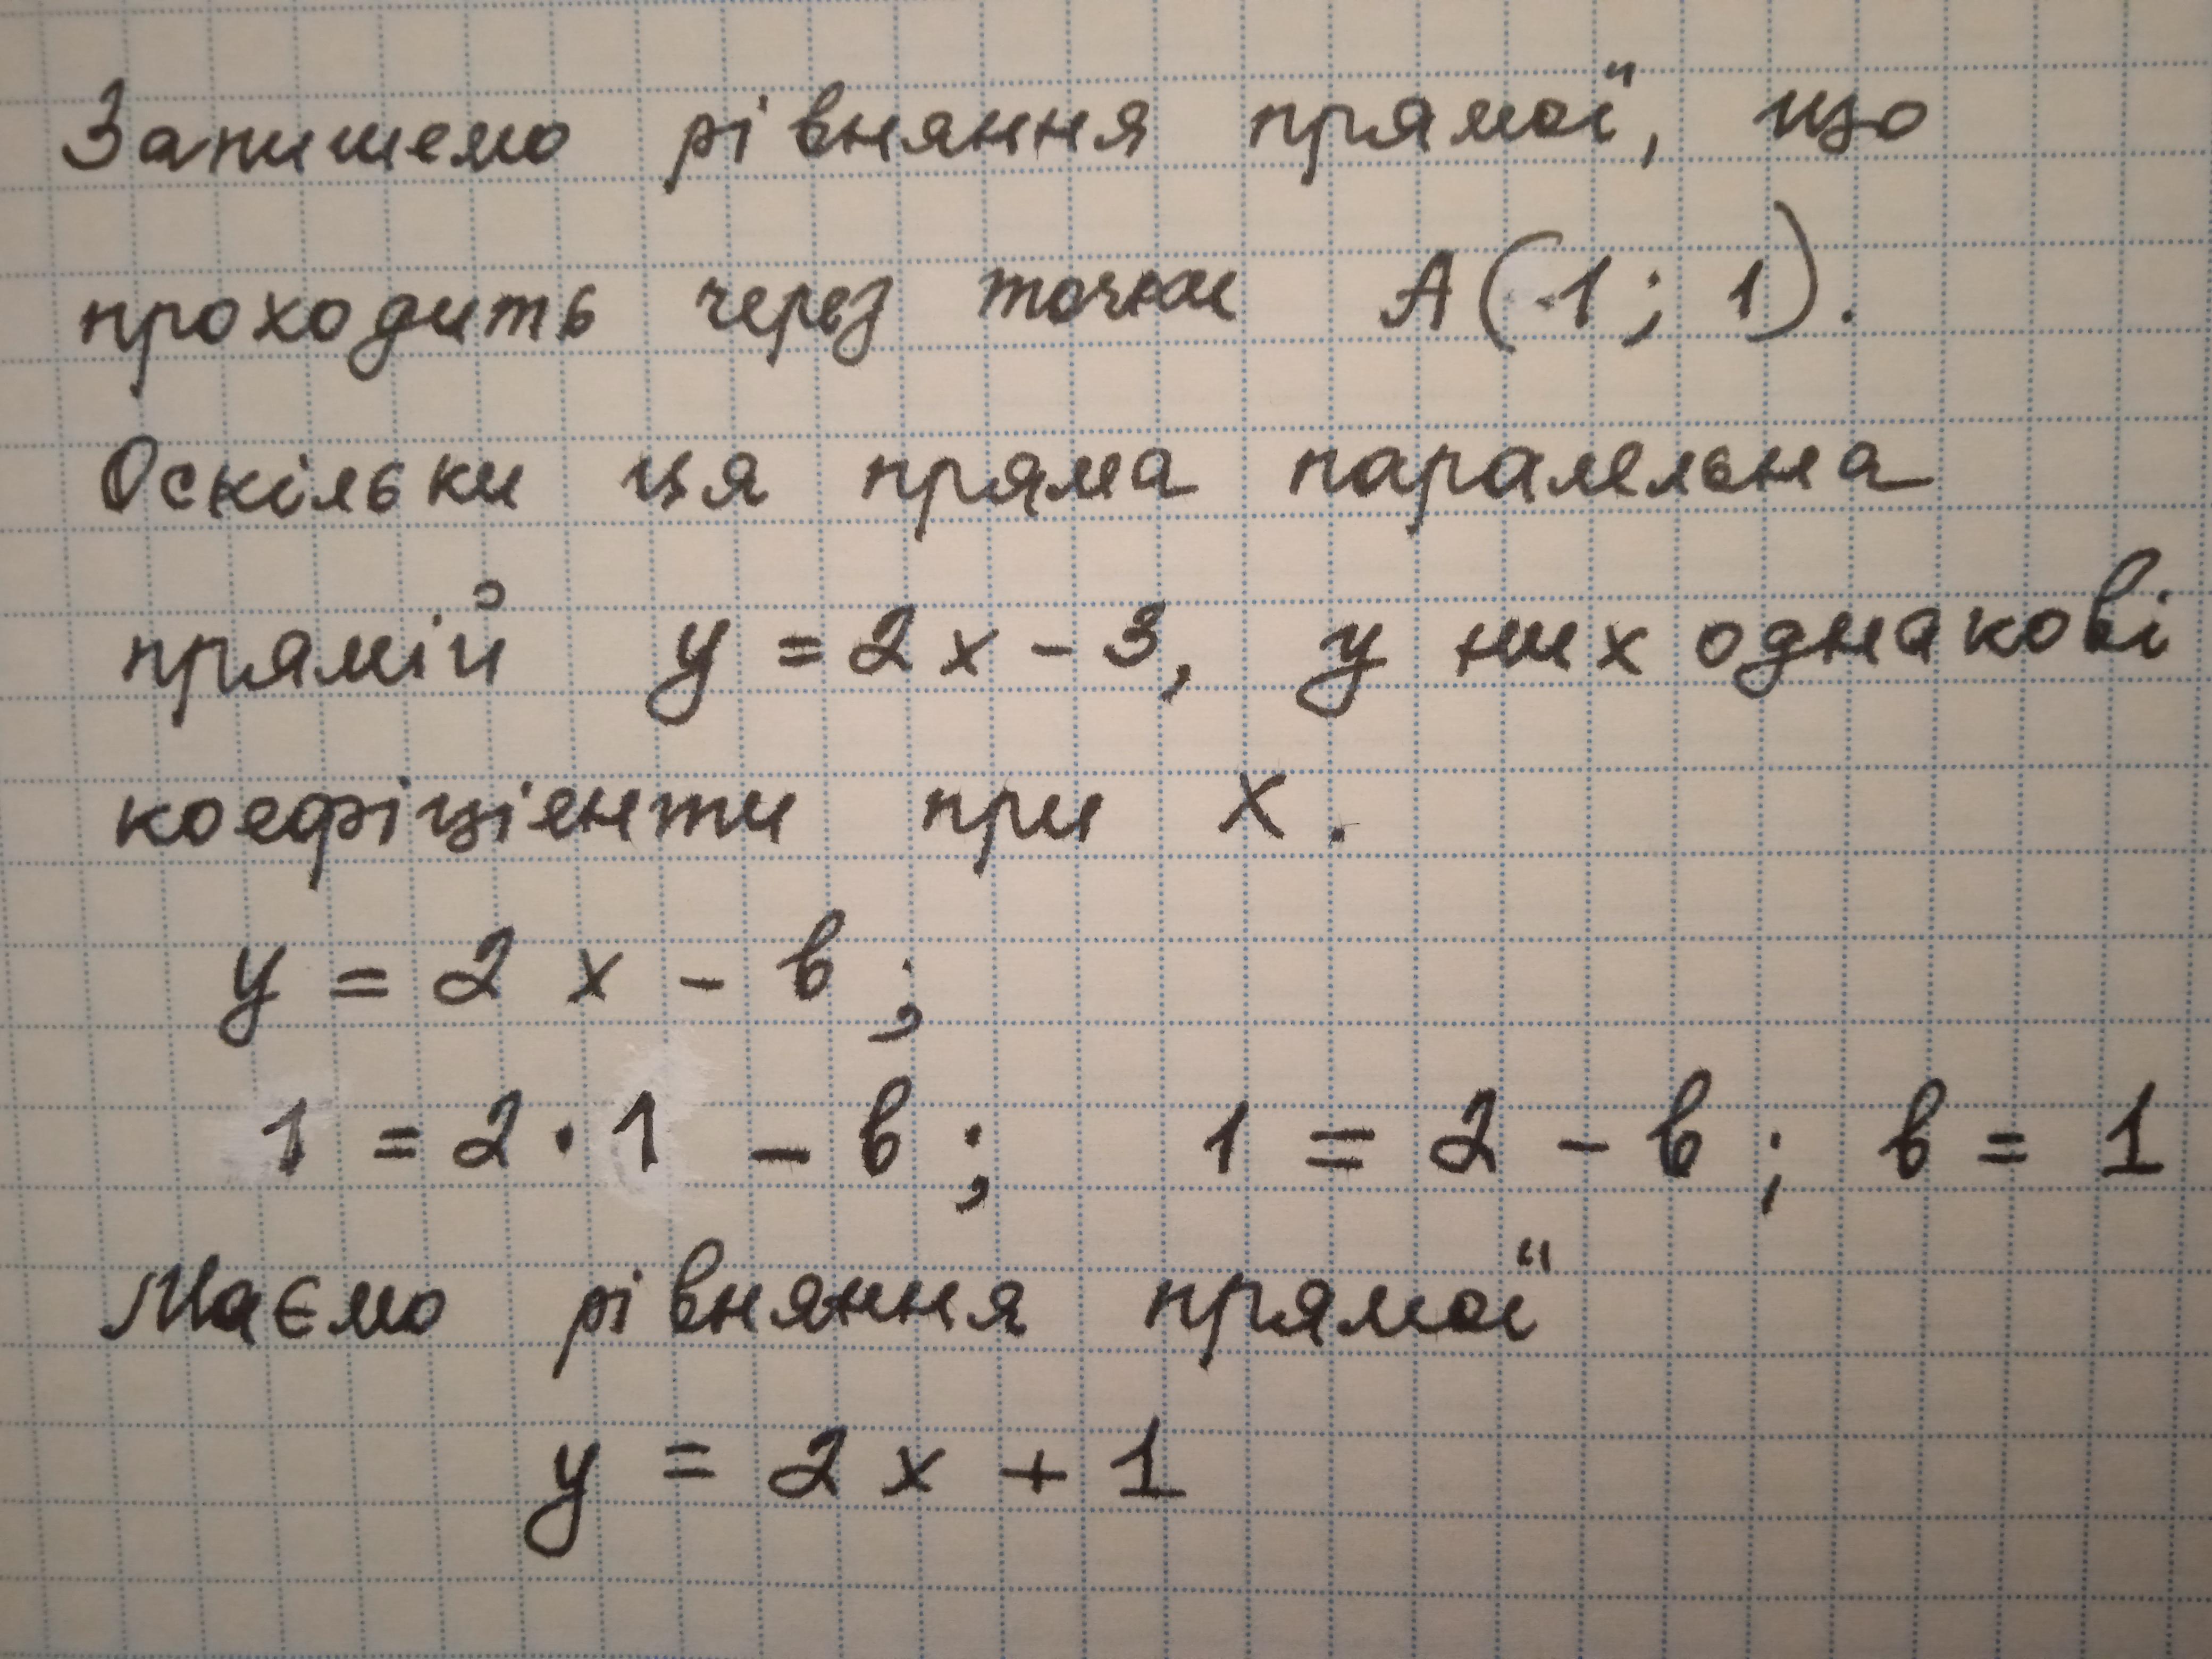 Запишемо рівняння прямої, що
проходить через точки A(-1; 1).
Оскільки ця пряма паралельна
прямій y = 2x - 3, у них однакові
коефіціенти при x.
y = 2x - b;
1 = 2 · 1 - b; 1 = 2 - b; b = 1
Маємо рівняння прямої
y = 2x + 1